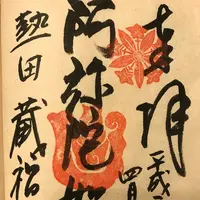 奉拝
平成二
四月
阿弥陀如
熱田蔵福